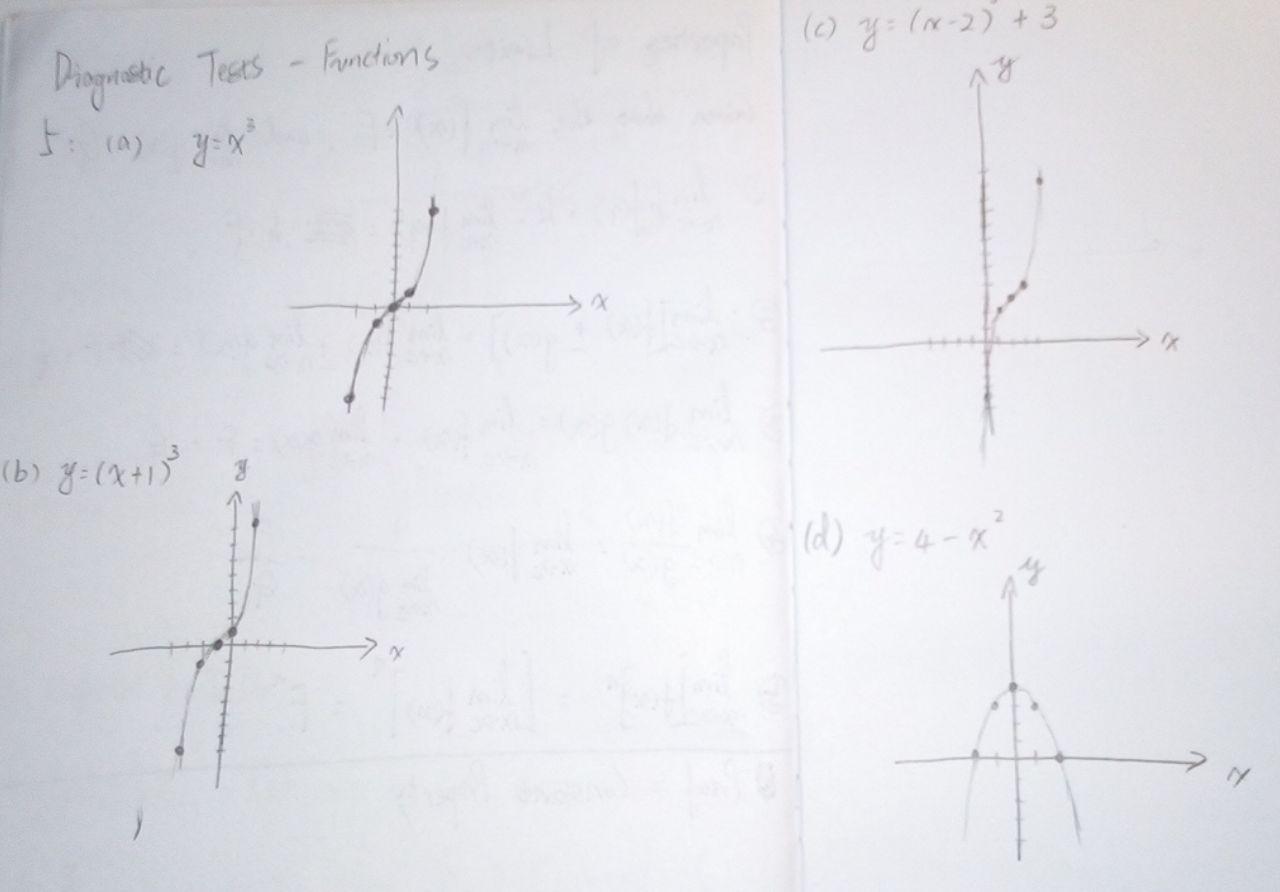 Diagnostic Tests - Functions
5: (a) y=x³
x
(b) y=(x+1)³
y
x
(c) y=(x-2) + 3
y
x
(d) y=4-x²
y
x